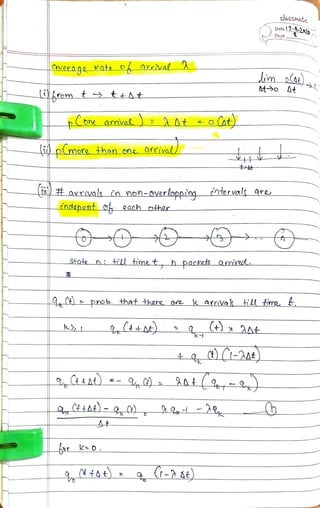 classmate
Date 17-8-20
Page 8
average rate of arrival λ
lim o(Δt) → 0
Δt→0 Δt
(i) from t → t+Δt
p(one arrival) = λΔt + o(Δt)
(ii) p(more than one arrival)
(iii) # arrivals in non-overlapping intervals are
indepent of each other
0 → 1 → 2 → 3 → ... n
state n: till time t, n packets arrived.
qₖ(t) = prob that there are k arrivals till time t.
k≥1 qₖ(t+Δt) = qₖ₋₁(t) × λΔt
+ qₖ(t) (1-λΔt)
qₖ(t+Δt) - qₖ(t) = λΔt (qₖ₋₁ - qₖ)
qₖ(t+Δt) - qₖ(t) = λqₖ₋₁ - λqₖ
Δt
for k=0.
q₀(t+Δt) = q₀ (1-λΔt)